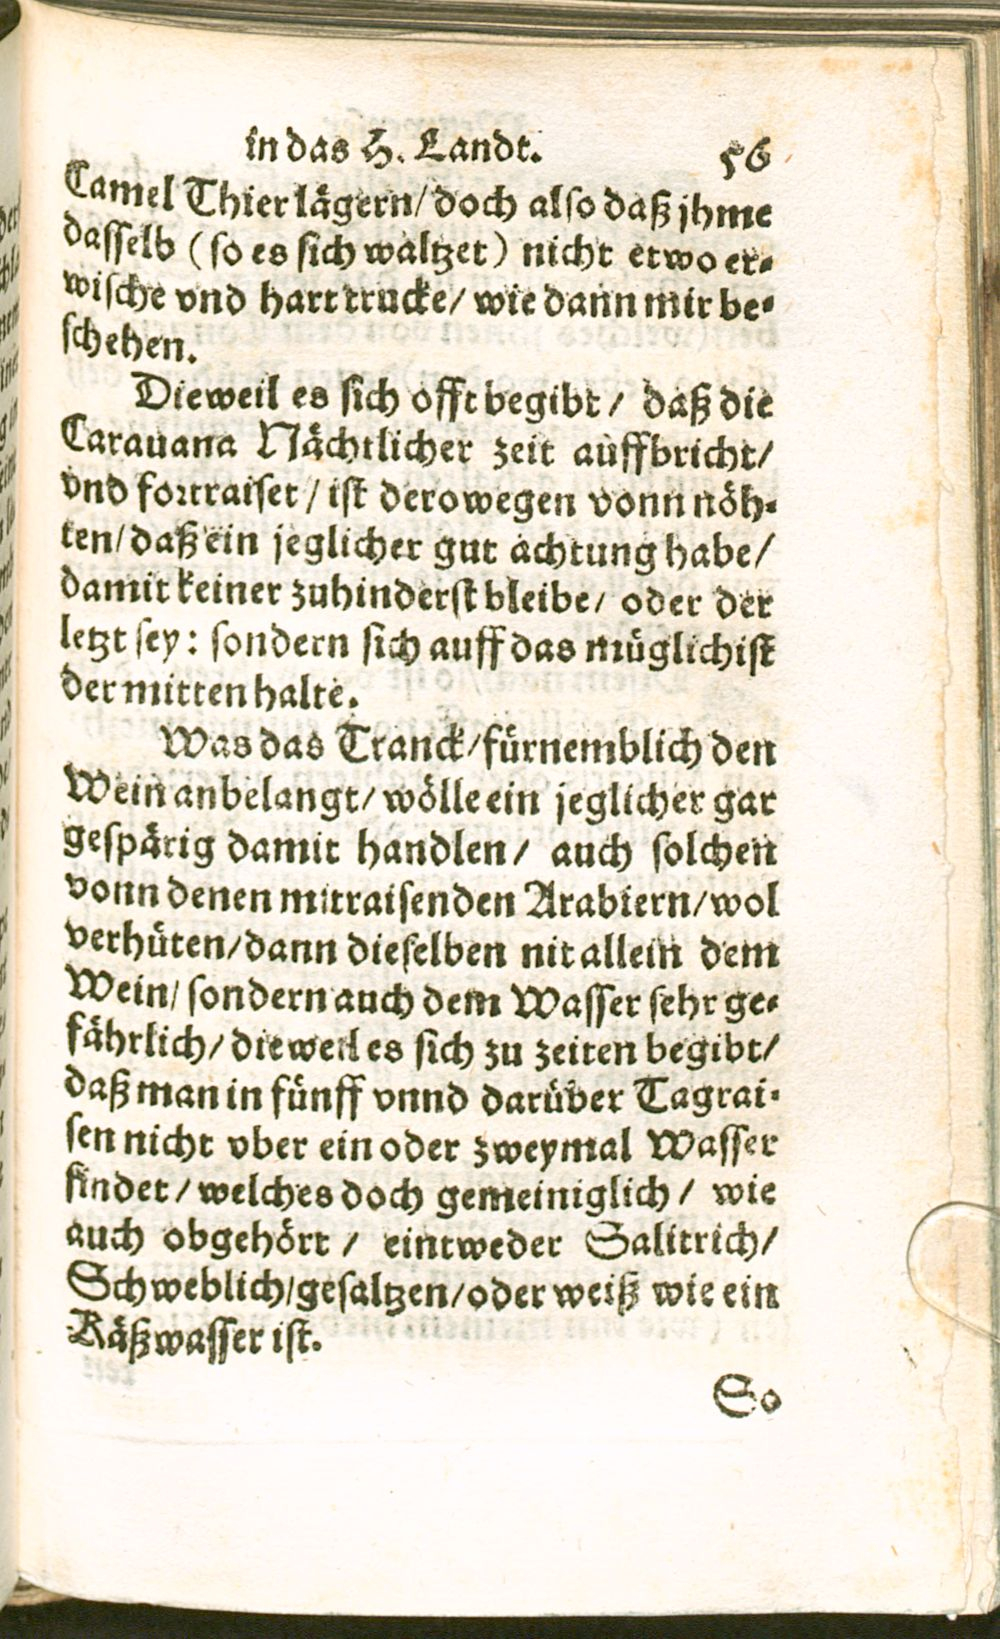 in das H. Landt. 56
Camel Thier lägern/ doch also daß jhme
dasselb (so es sich waltzet) nicht etwo er-
wische vnd hart trucke/ wie dann mir be-
schehen.
Dieweil es sich offt begibt/ daß die
Carauana Nächtlicher zeit auffbricht/
vnd fortraiset/ ist derowegen vonn nöh-
ten/ daß ein jeglicher gut achtung habe/
damit keiner zuhinderst bleibe/ oder der
letzt sey: sondern sich auff das müglichist
der mitten halte.
Was das Tranck/ fürnemblich den
Wein anbelangt/ wölle ein jeglicher gar
gespärig damit handlen/ auch solchen
vonn denen mitraisenden Arabiern/ wol
verhüten/ dann dieselben nit allein dem
Wein/ sondern auch dem Wasser sehr ge-
fährlich/ dieweil es sich zu zeiten begibt/
daß man in fünff vnnd darüber Tagrai-
sen nicht vber ein oder zweymal Wasser
findet/ welches doch gemeiniglich/ wie
auch obgehört/ eintweder Salitrich/
Schweblich/ gesaltzen/ oder weiß wie ein
Käßwasser ist.
So